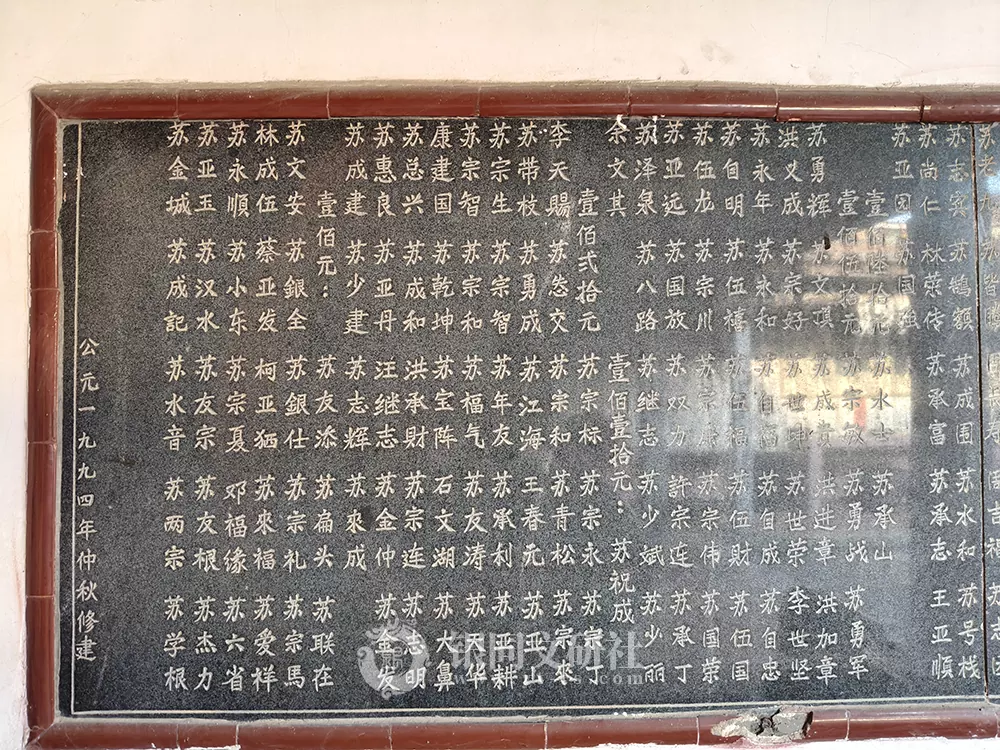 苏志宾 苏鹊额 苏成国 苏水和 苏号栈
苏尚仁 林荣传 苏承富 苏承志 王亚順
苏亚园 苏国强
壹佰陆拾元 苏水士 苏承山
壹佰伍拾元 苏宗敏 苏勇战 苏勇军
苏勇辉 苏文琪 苏成贵 洪进章 洪加章
洪文成 苏宗好 苏世坤 苏世荣 李世坚
苏永年 苏永和 苏自福 苏自成 苏自忠
苏自明 苏伍禧 苏伍福 苏伍財 苏伍国
苏伍龙 苏宗川 苏宗康 苏宗伟 苏国荣
苏亚远 苏国放 苏双力 許宗连 苏承丁
苏泽泉 苏八路 苏继志 苏少斌 苏少丽
余文其 壹佰壹拾元： 苏祝成
壹佰弍拾元 苏宗标 苏宗永 苏宗丁
李天賜 苏交 苏宗和 苏青松 苏宗來
苏带枝 苏勇成 苏江海 王春元 苏亚山
苏宗生 苏宗智 苏年友 苏承利 苏亚耕
苏宗智 苏宗和 苏福气 苏友涛 苏天华
康建国 苏乾坤 苏宝阵 石文湖 苏大鼻
苏总兴 苏成和 洪承財 苏宗连 苏志明
苏惠良 苏亚丹 汪继志 苏金仲 苏金发
苏成建 苏少建 苏志辉 苏來成
壹佰元： 苏友添 苏扁头 苏联在
苏文安 苏銀全 苏銀仕 苏宗礼 苏宗馬
林成伍 蔡亚发 柯亚 苏來福 苏爱祥
苏永順 苏小东 苏宗夏 邓福缘 苏六省
苏亚玉 苏汉水 苏友宗 苏友根 苏杰力
苏金城 苏成記 苏水音 苏两宗 苏学根
公元一九九四年仲秋修建
银同文研社